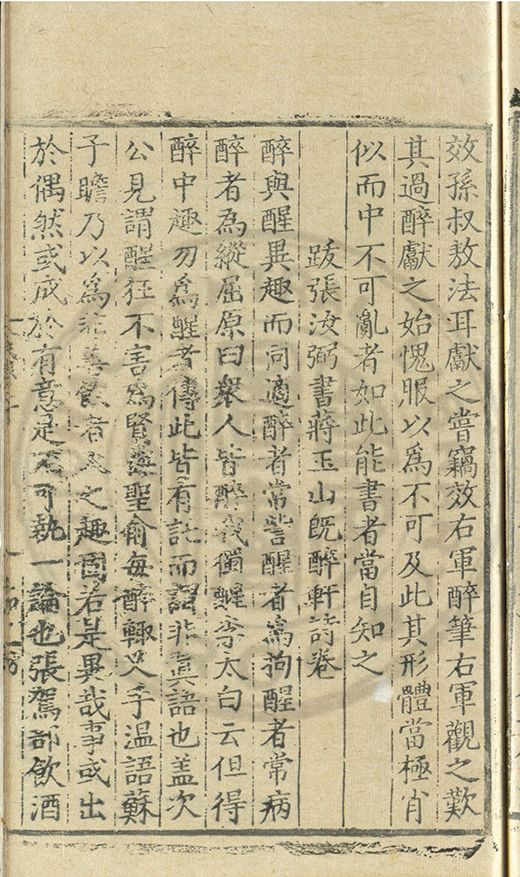 效孫叔敖法耳獻之嘗竊效右軍醉筆右軍觀之歎
其過醉獻之始愧服以爲不可及此其形體當極肖
似而中不可亂者如此能書者當自知之
跋張汝弼書蔣玉山既醉軒詩卷
醉與醒異趣而同適醉者常訾醒者爲拘醒者常病
醉者為縱屈原曰衆人皆醉我獨醒李太白云但得
醉中趣勿爲醒者傳此皆有託而謂非眞語也盖次
公見謂醒狂不害爲賢梅聖俞每醉輙叉手温語蘇
子瞻乃以爲非善飲者人之趣固若是異哉事或出
於偶然或成於有意是不可執一論也張駕部飲酒